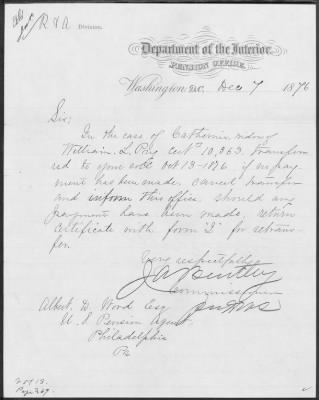 R & A Division.
Department of the Interior,
PENSION OFFICE,
Washington, D.C. Dec 7 1876
Sir:
In the case of Catherine, widow of
William L. Cert 10,363 transfer-
red to your roll Oct 13-1876 if no pay-
ment has been made, cancel transfer
and inform this office, should any
payment have been made, return
certificate with form "I" for retrans-
fer.
Very respectfully
J A Bentley
Commissioner
Albert D. Wood Esq
U. S Pension Agent
Philadelphia
Pa
Page 269